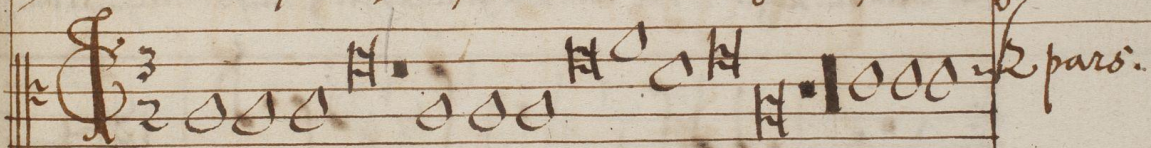 3
2
2 pars.